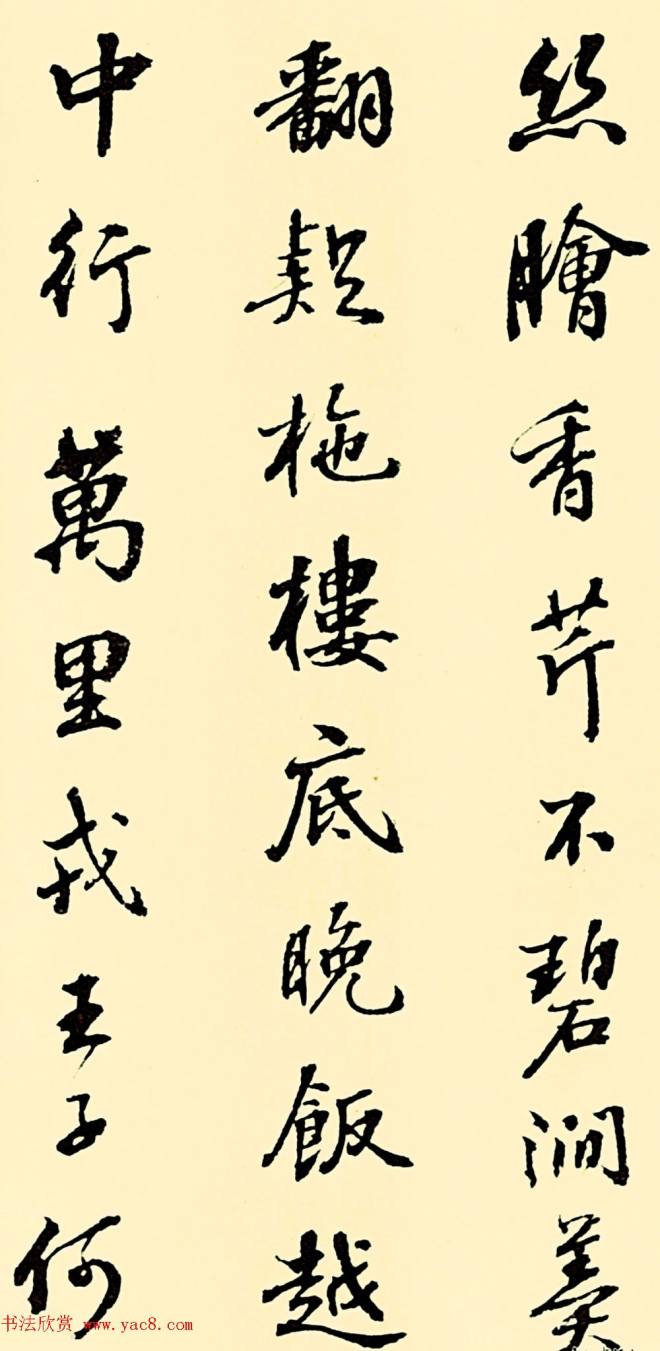 丝膾香芹不碧澗羹
翻疑柂樓底晚飯越
中行萬里戎王子何
书法欣赏 www.yac8.com